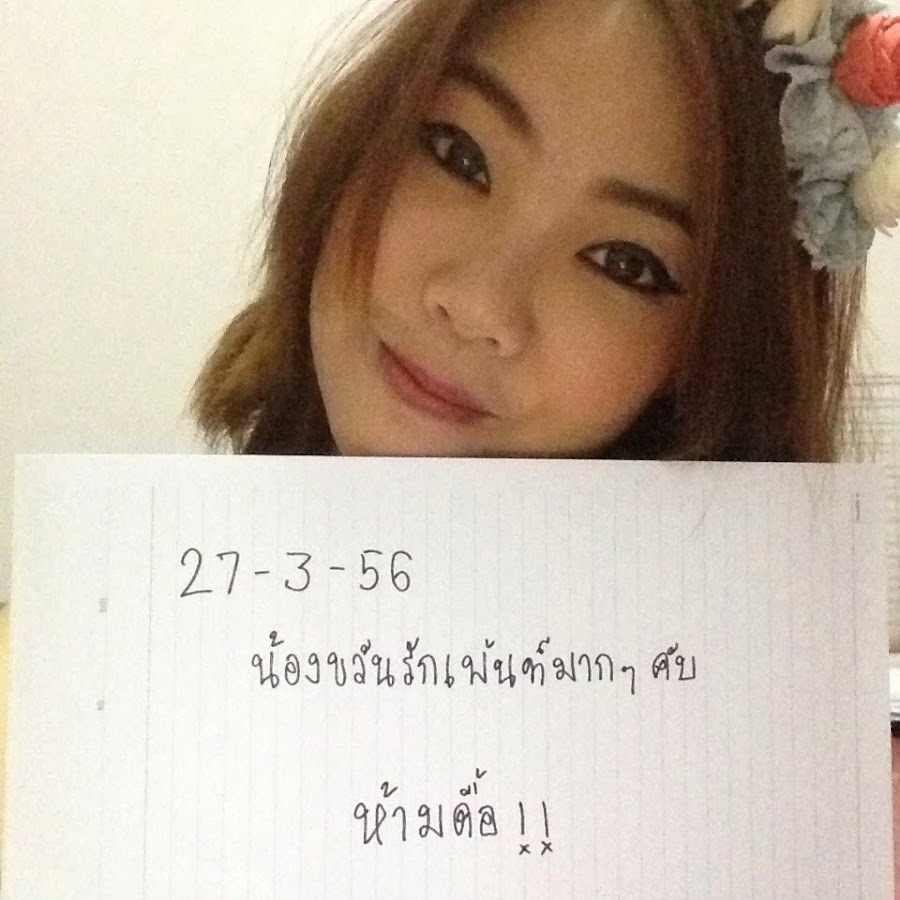 27-3-56
น้องขวัญรักเพ้นท์มากๆ คับ
ห้ามดื้อ !!